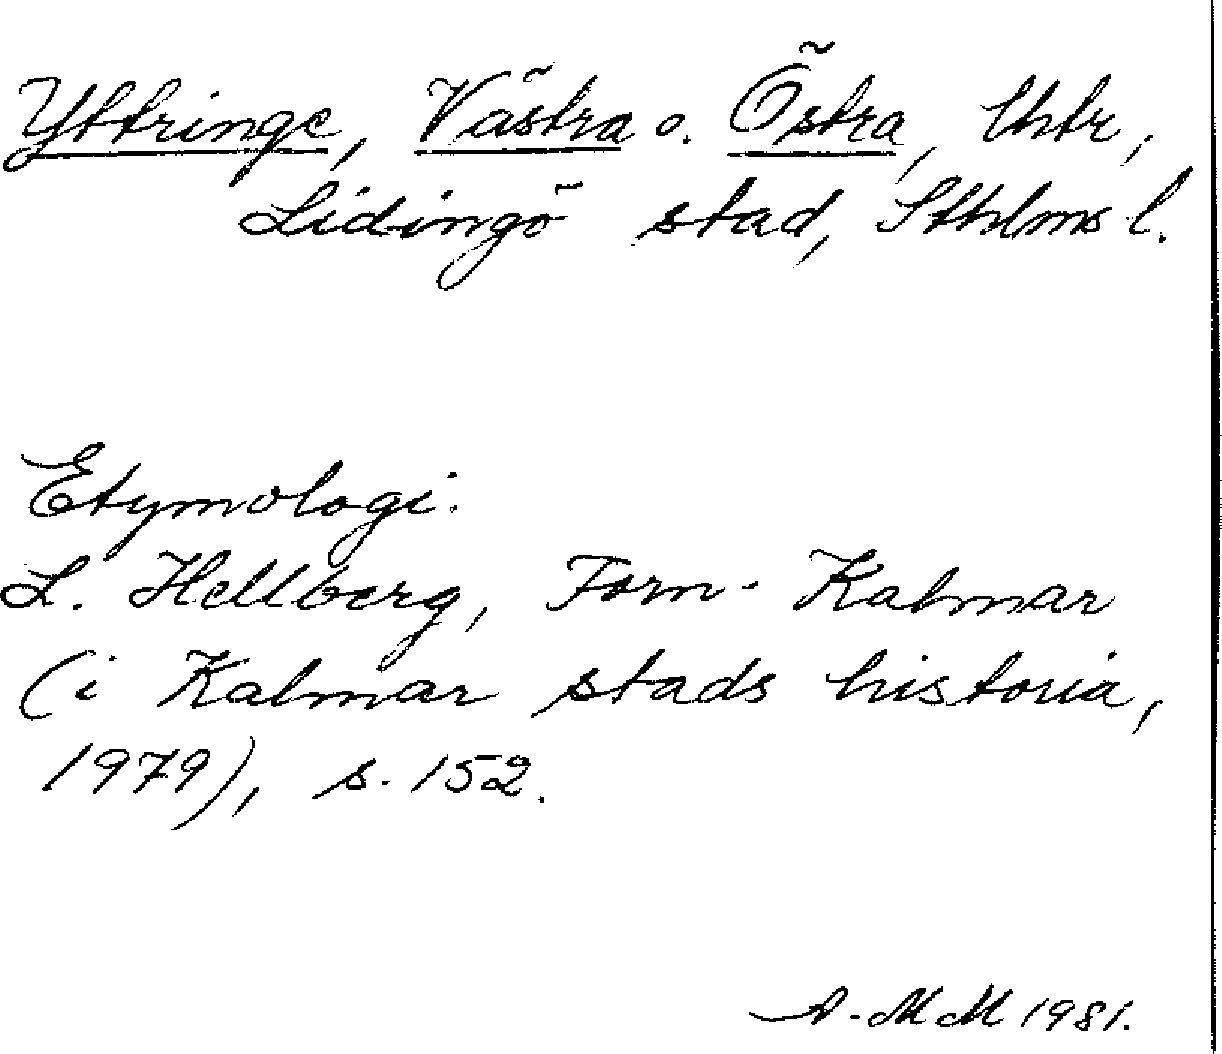 Yttringe, Västra o. Östra, thtr,
Lidingö stad, Sthlms l.
Etymologi.
L. Hellberg, Forn-Kalmar
(i Kalmar stads historia,
1979), s. 152.
A-MM 1981.